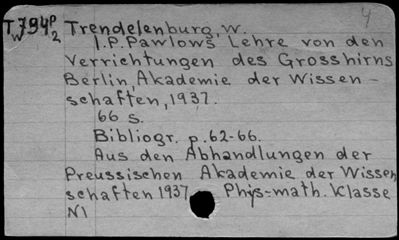 4
Tw794p2 Trendelenburg, W.
I.P. Pawlows Lehre von den
Verrichtungen des Grosshirns
Berlin, Akademie der Wissen-
schaften, 1937.
66 s.
Bibliogr. p. 62-66.
Aus den Abhandlungen der
Preussischen Akademie der Wissen
schaften 1937 Phys-math. Klasse
N1